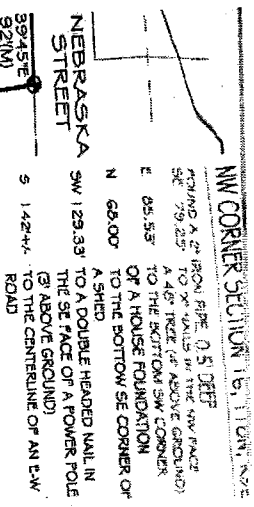 NW CORNER SECTION 16, T10N, R9E
FOUND A 2" IRON PIPE 0.5' DEEP
SE 79.25' TO "X" NAILS IN THE NW FACE
A 48" TREE (4' ABOVE GROUND)
E 85.53' TO THE BOTTOM SW CORNER
OF A HOUSE FOUNDATION
N 68.00' TO THE BOTTOM SE CORNER OF
A SHED
SW 129.33' TO A DOUBLE HEADED NAIL IN
THE SE FACE OF A POWER POLE
(3' ABOVE GROUND)
S 1.42'+/- TO THE CENTERLINE OF AN E-W
ROAD
NEBRASKA
STREET
39'45"E
92'(M)